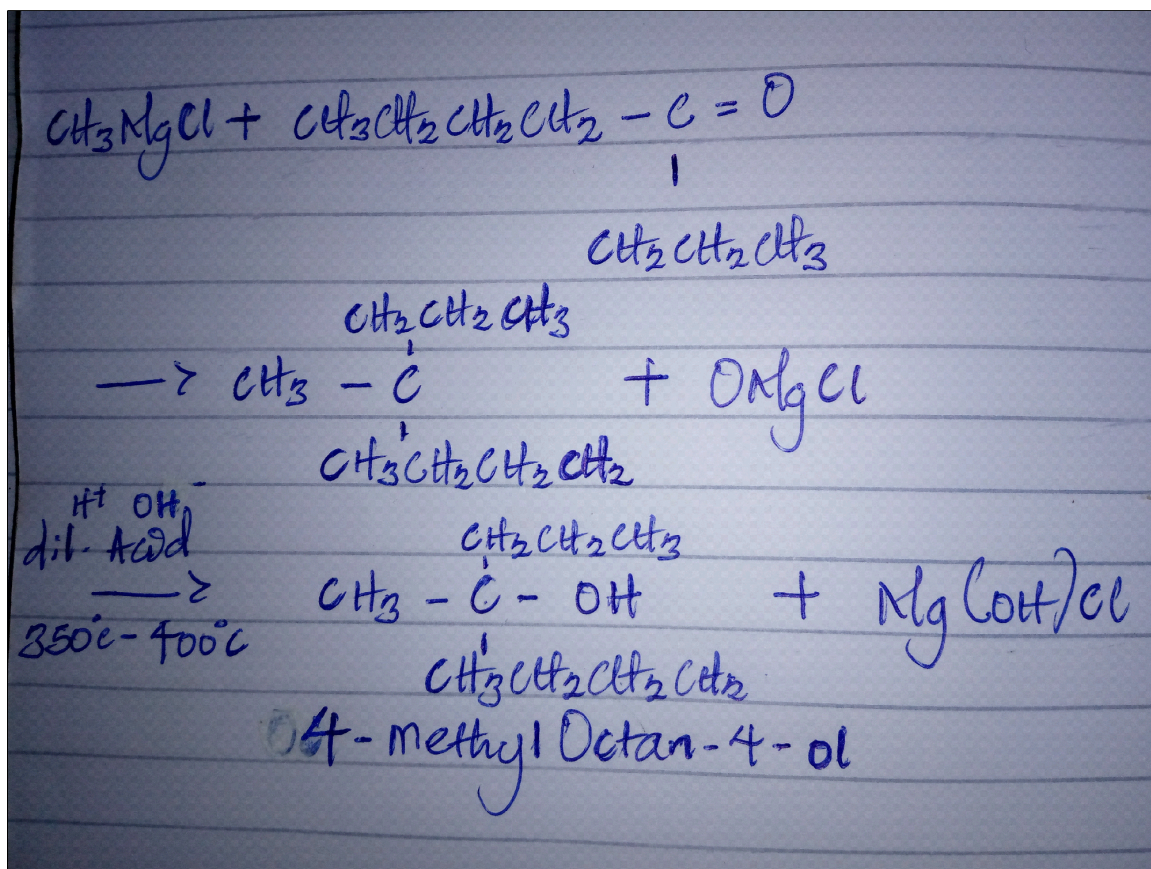 CH3MgCl + CH3CH2CH2CH2 - C = O
CH2CH2CH3
CH2CH2CH3
-> CH3 - C + OMgCl
CH3CH2CH2CH2
H+ OH-
dil. Acid
CH2CH2CH3
-> CH3 - C - OH + Mg(OH)Cl
350°c - 400°c
CH3CH2CH2CH2
4-methyl Octan-4-ol